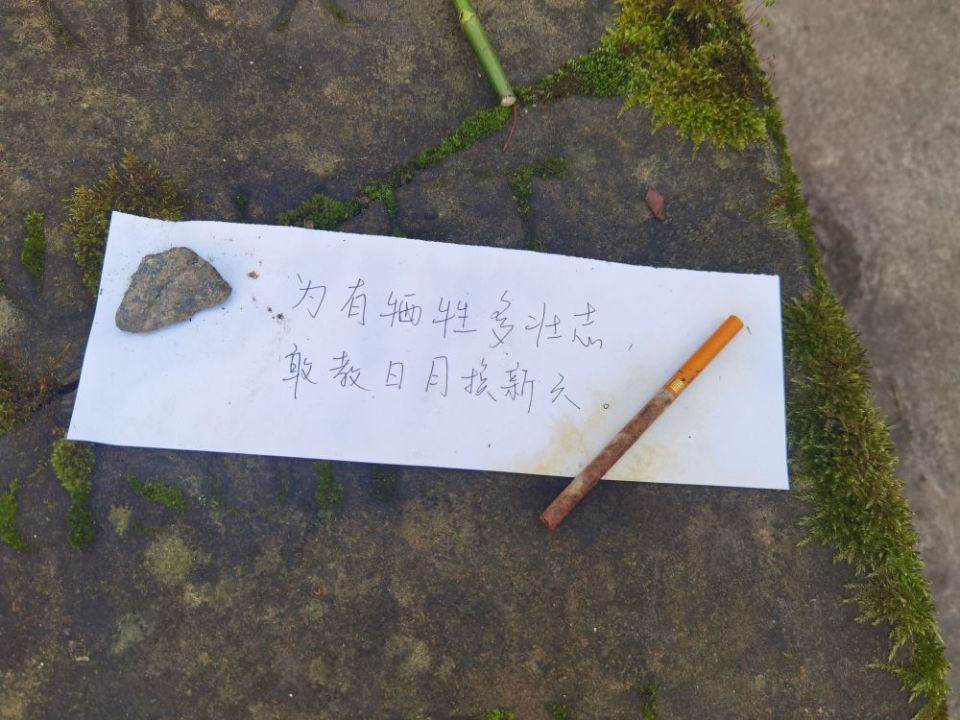 为有牺牲多壮志,
敢教日月换新天。